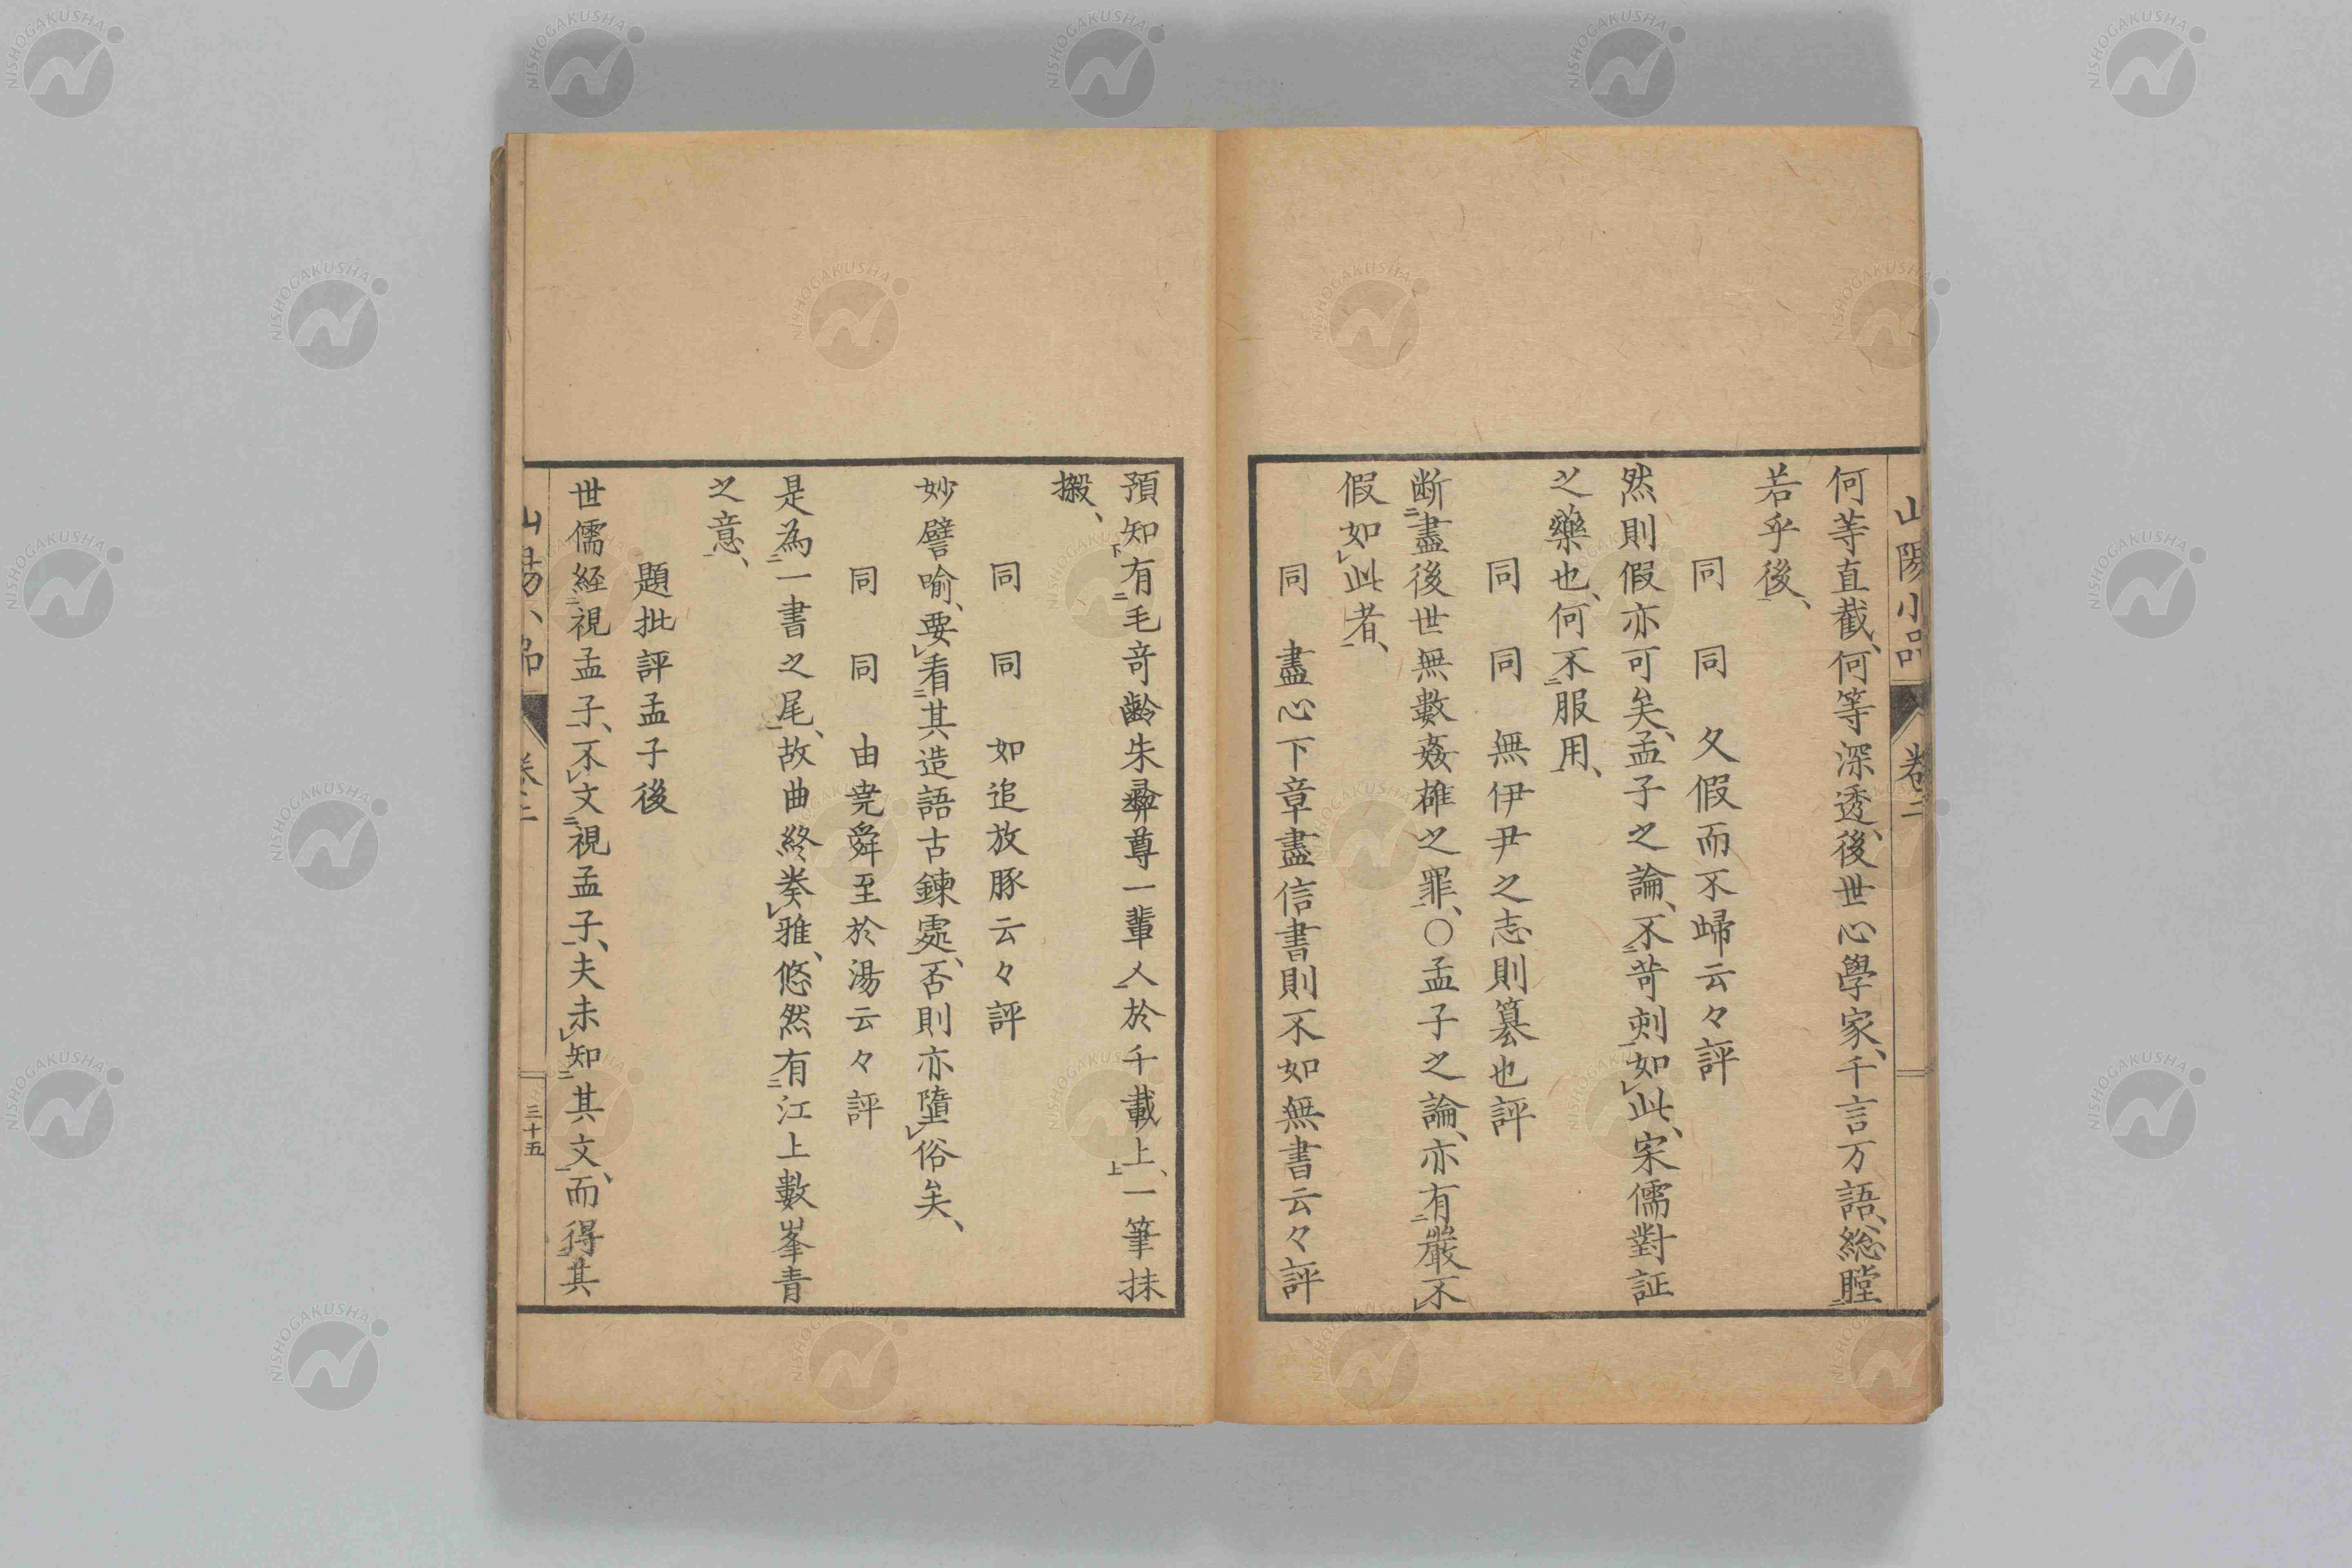 山陽小品 卷二
何等直截、何等深透、後世心學家、千言万語、総瞠二
若乎後一、
同 同 久假而不歸云々評
然則假亦可矣、孟子之論、不二苛刻一如レ此、宋儒對証
之藥也、何不二服用一、
同 同 無伊尹之志則簒也評
断二盡後世無數姦雄之罪一、〇孟子之論、亦有二嚴不レ
假如レ此者一、
同 盡心下章盡信書則不如無書云々評
預知下有二毛奇齡朱彝尊一輩人一於千載上上、一筆抹
摋、
同 同 如追放豚云々評
妙譬喻、要レ看二其造語古鍊處一、否則亦墮レ俗矣、
同 同 由堯舜至於湯云々評
是為二一書之尾一、故曲終奏レ雅、悠然有二江上數峯青
之意一、
題批評孟子後
世儒経二視孟子一、不レ文二視孟子一、夫未レ知二其文一、而得二其
山陽小品 卷二 三十五
NISHOGAKUSHA